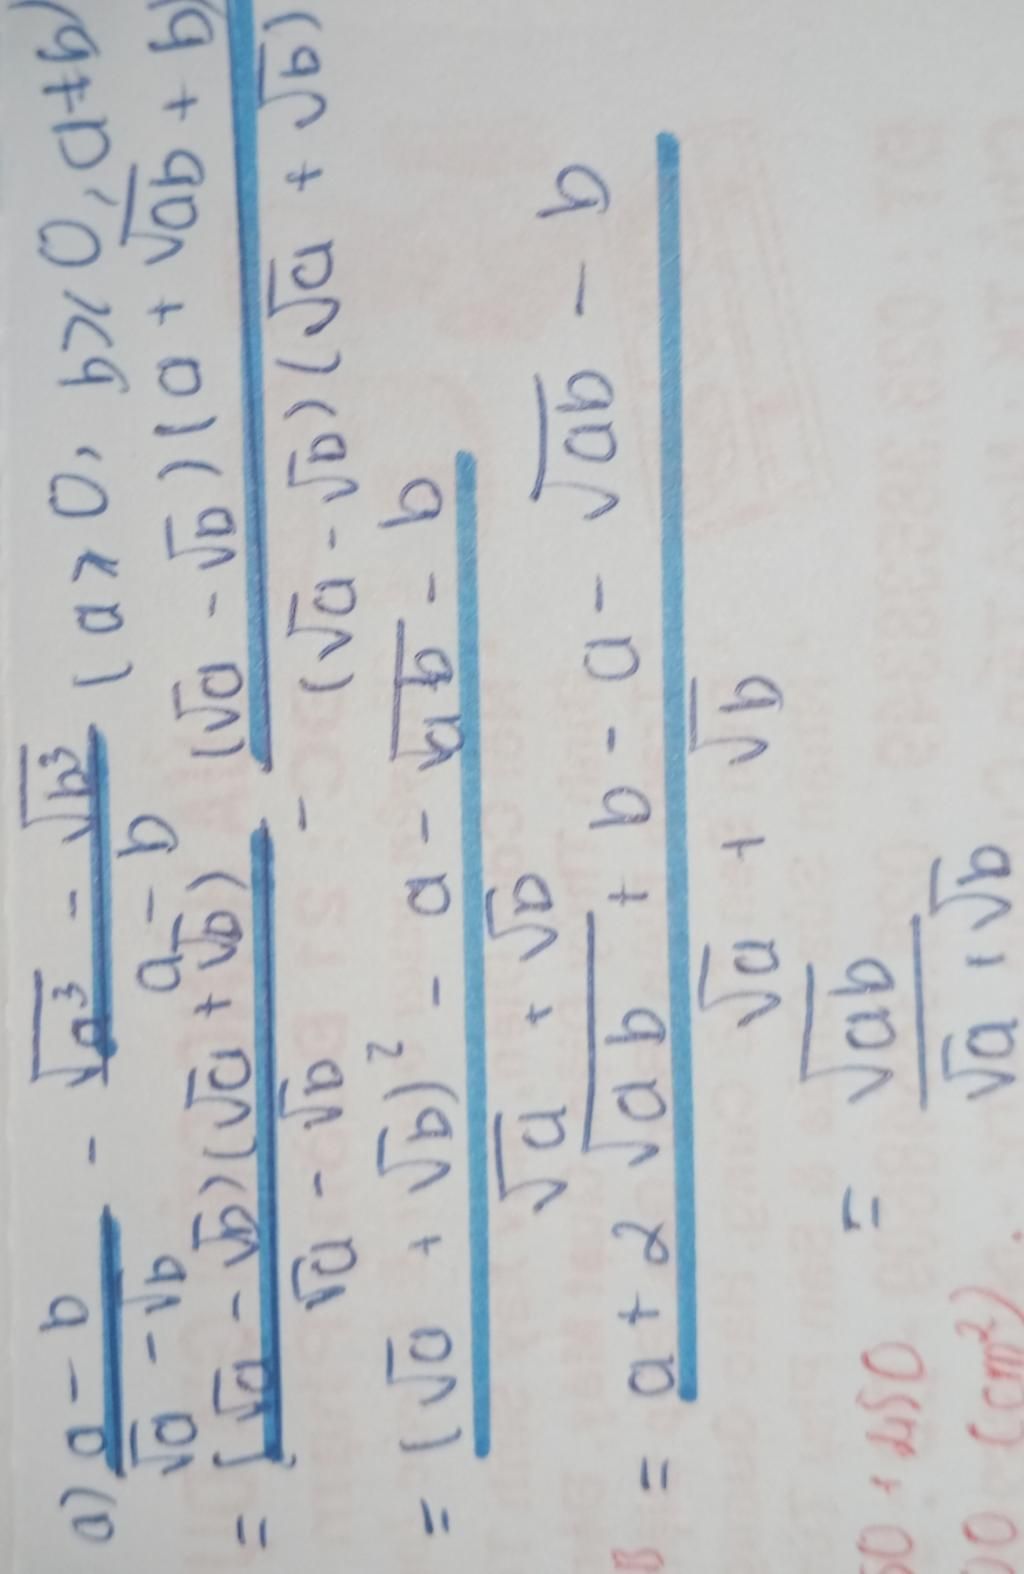 a) a - b / √a - √b - √a³ - √b³ / a - b ( a > 0, b ≥ 0, a ≠ b )
= (√a - √b)(√a + √b) / √a - √b - (√a - √b)(a + √ab + b) / (√a - √b)(√a + √b)
= (√a + √b)² - a - √ab - b / √a + √b
= a + 2√ab + b - a - √ab - b / √a + √b
= √ab / √a + √b